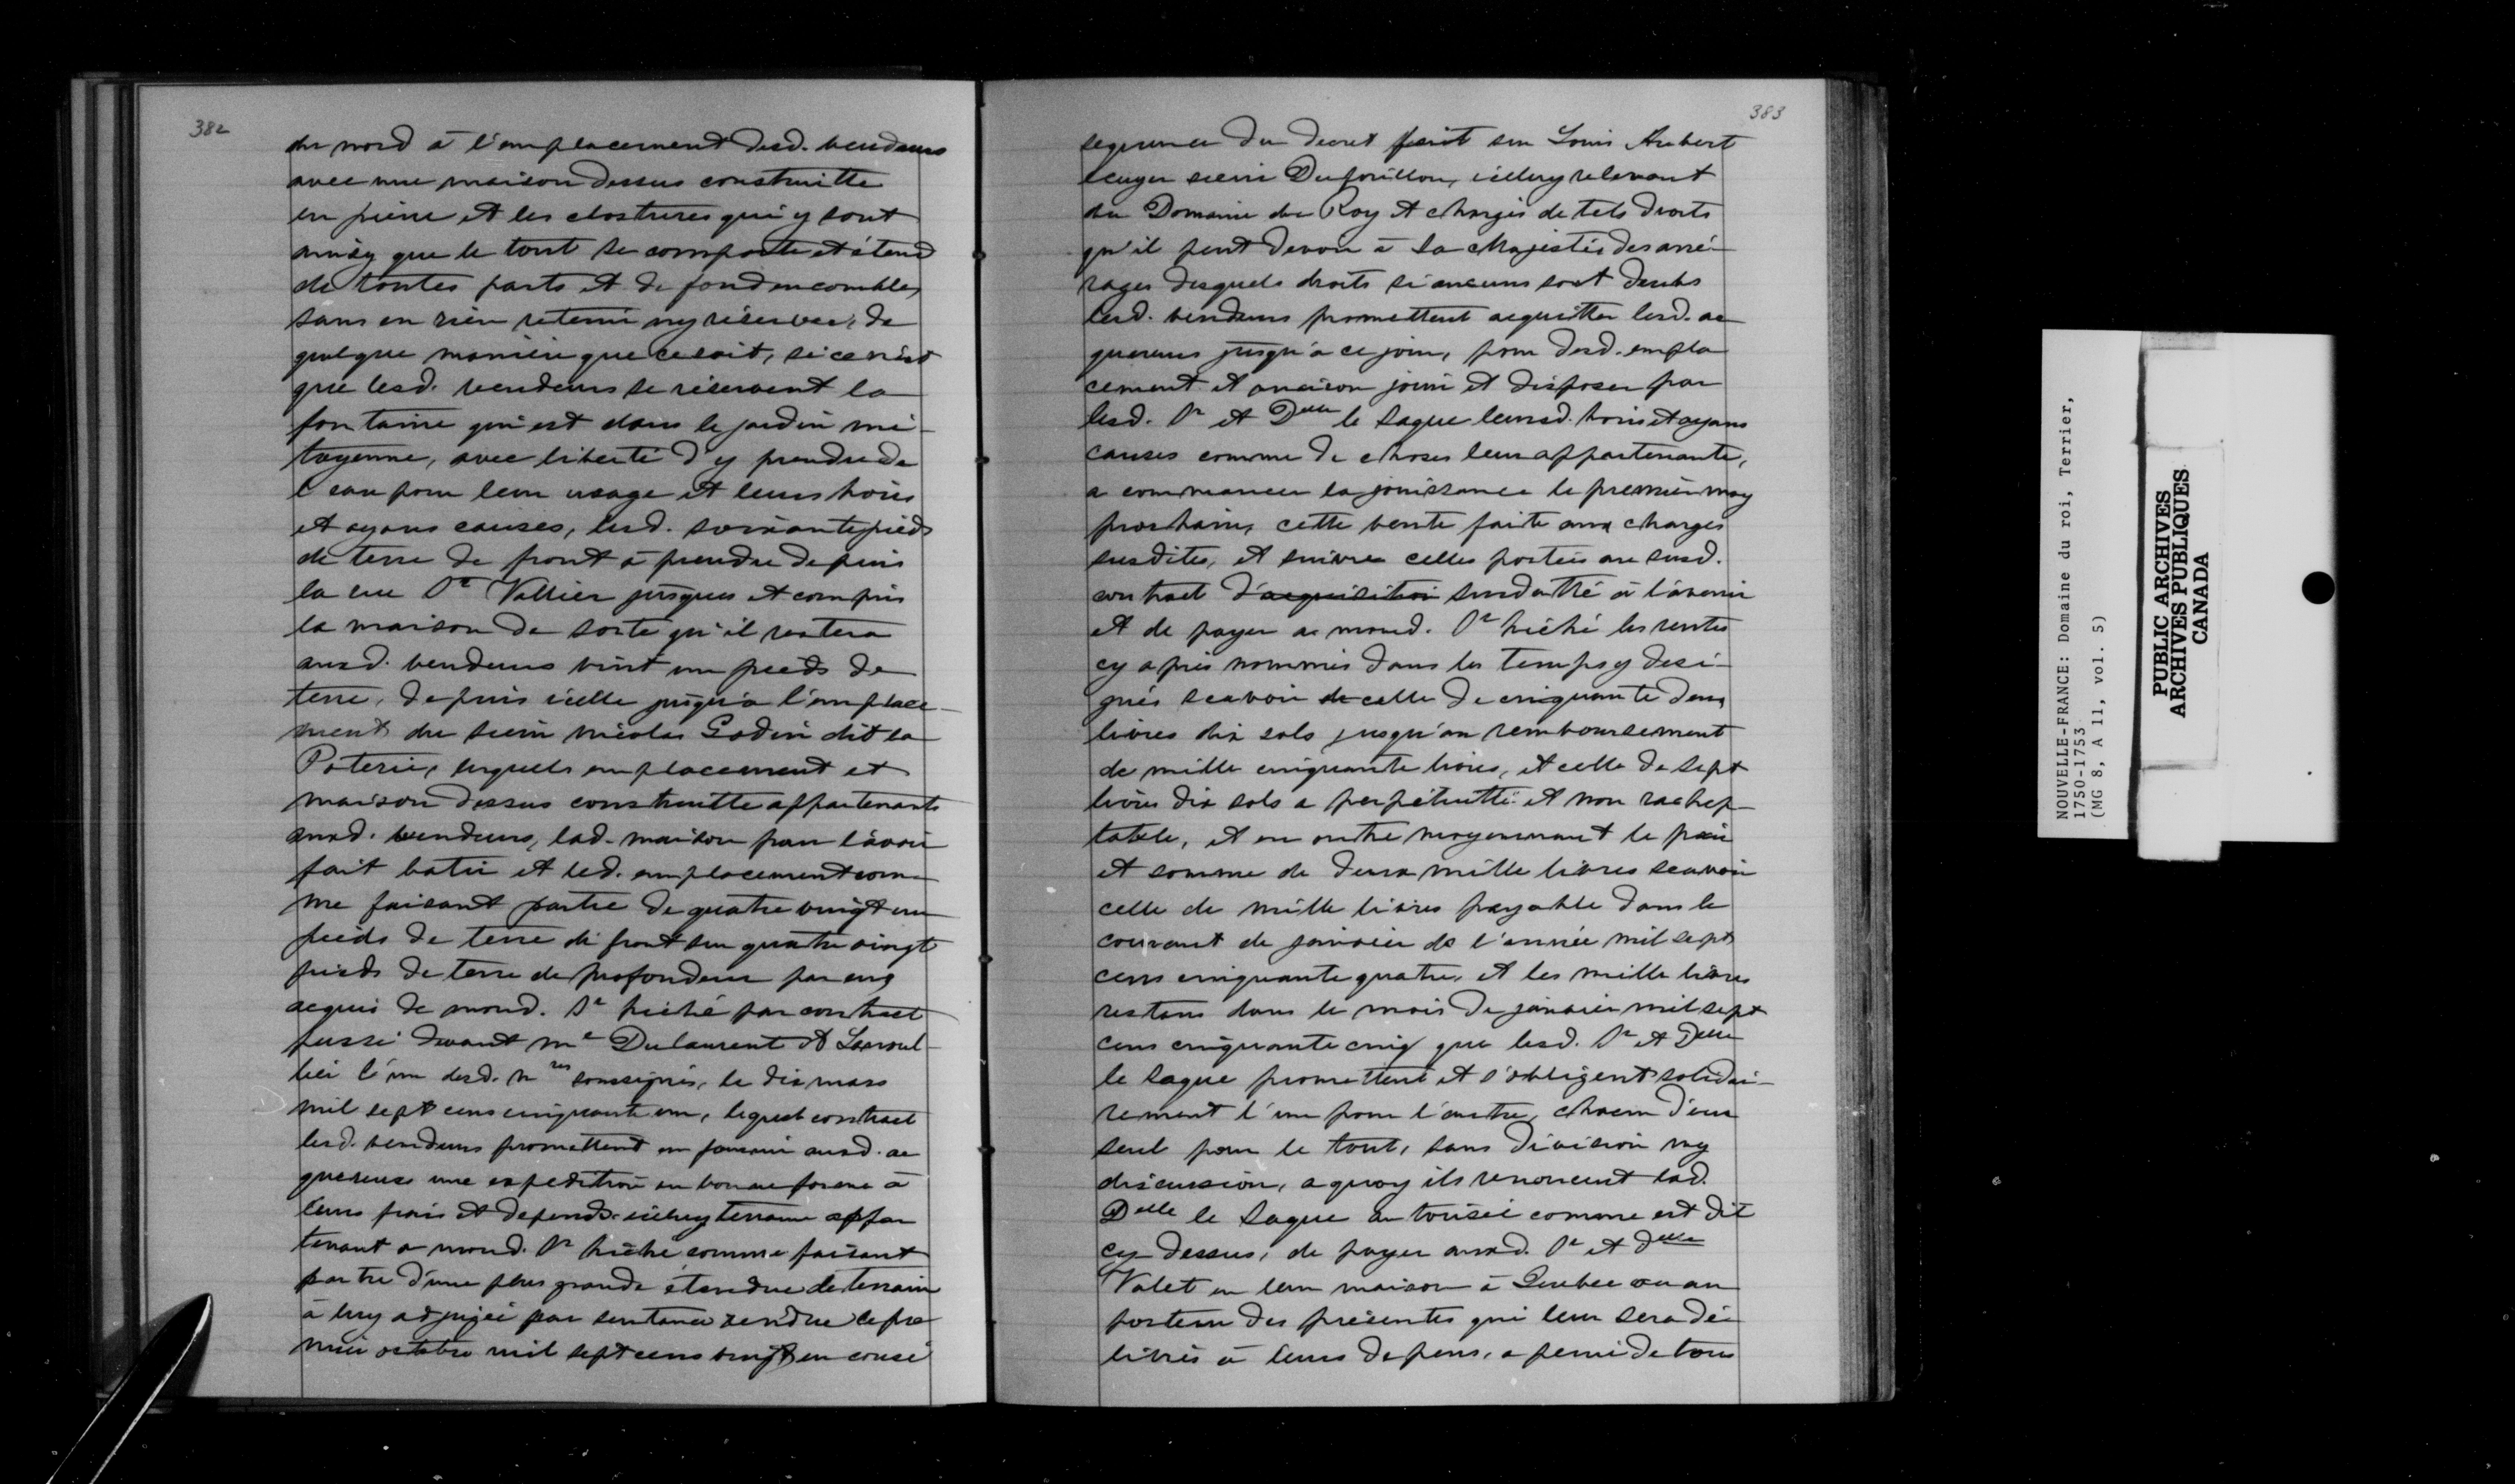 382
du nord à l'emplacement desd. vendeurs
avec une maison dessus construitte
en pierre et les clostures qui y sont
ainsy que le tout se comporte et s'étend
de toutes parts et de fond en comble,
sans en rien retenir ny réserver, de
quelque manière que ce soit, si ce n'est
que lesd. vendeurs se réservent la
fontaine qui est dans le jardin mi-
toyenne, avec liberté d'y prendre de
l'eau pour leur usage et leurs hoirs
et ayans causes, lesd. soixante pieds
de terre de front à prendre depuis
la rue St Vallier jusques et compris
la maison de sorte qu'il restera
ausd. vendeurs vint un pieds de
terre, depuis icelle jusqu'à l'emplace-
ment du sieur nicolas Godin dit la
Poterie, lesquels emplacement et
maison dessus construitte appartenants
ausd. vendeurs, lad. maison pour l'avoir
fait batir et led. emplacement com-
me faisant partie de quatre vingt un
pieds de terre de front sur quatre vingt
pieds de terre de profondeur par eux
acquis de mond. Sr hiché par contract
passé devant me Dulaurent et
l'un desd. nres soussignés, le dix mars
mil sept cens cinquante un, lequel contract
lesd. vendeurs promettent en fournir ausd. ac
quereurs une expedition en bonne forme à
leurs frais et depends. iceluy terrain appar
tenant a mond. Sr hiché comme faisant
partie d'une plus grande étendue de terrain
à luy adjugée par sentence rendue le pre
mier octobre mil sept cens vingt en consé
383
sequence du decret fait sur Louis Aubert
ecuyer sieur Duforillon, iceluy relevant
du Domaine du Roy et chargés de tels droits
qu'il peut devoir à Sa Majestés des arré-
rages desquels droits si aucuns sont deubs
lesd. vendeurs promettent acquitter lesd. ac
quereurs jusqu'a ce jour, pour desd. empla
cement et maison jouir et disposer par
lesd. Sr et Delle le Sague leursd. hoirs et ayans
causes comme de choses leur appartenante,
a commancer la jouissance le premier may
prochain, cette vente faite aux charges
susdites, et suivre celles portées au susd.
contract d'acquisition susdatté à l'avenir
et de payer a mond. Sr hiché les rentes
cy après nommés dans les temps y desi-
gnés scavoir de celle de cinquante deux
livres dix sols jusqu'au remboursement
de mille cinquante livres, et celle de sept
livres dix sols a perpétuitté et non rachep-
table, et en outre moyennant le prix
et somme de deux mille livres scavoir
celle de mille livres payable dans le
courant de janvier de l'année mil sept
cens cinquante quatre, et les mille livres
restans dans le mois de janvier mil sept
cens cinquante cinq que lesd. Sr et Delle
le Sague promettent et s'obligent solidai-
rement l'un pour l'autre, chacun d'eux
seul pour le tout, sans division ny
discussion, a quoy ils renoncent lad.
Delle le Sague autorisée comme est dit
cy dessus, de payer ausd. Sr et delle
Valet en leur maison à Quebec ou au
porteur des présentes qui leur sera dé-
livrés à leurs depens, a peine de tous
NOUVELLE-FRANCE: Domaine du roi, Terrier,
1750-1753
(MG 8, A 11, vol. 5)
PUBLIC ARCHIVES
ARCHIVES PUBLIQUES
CANADA